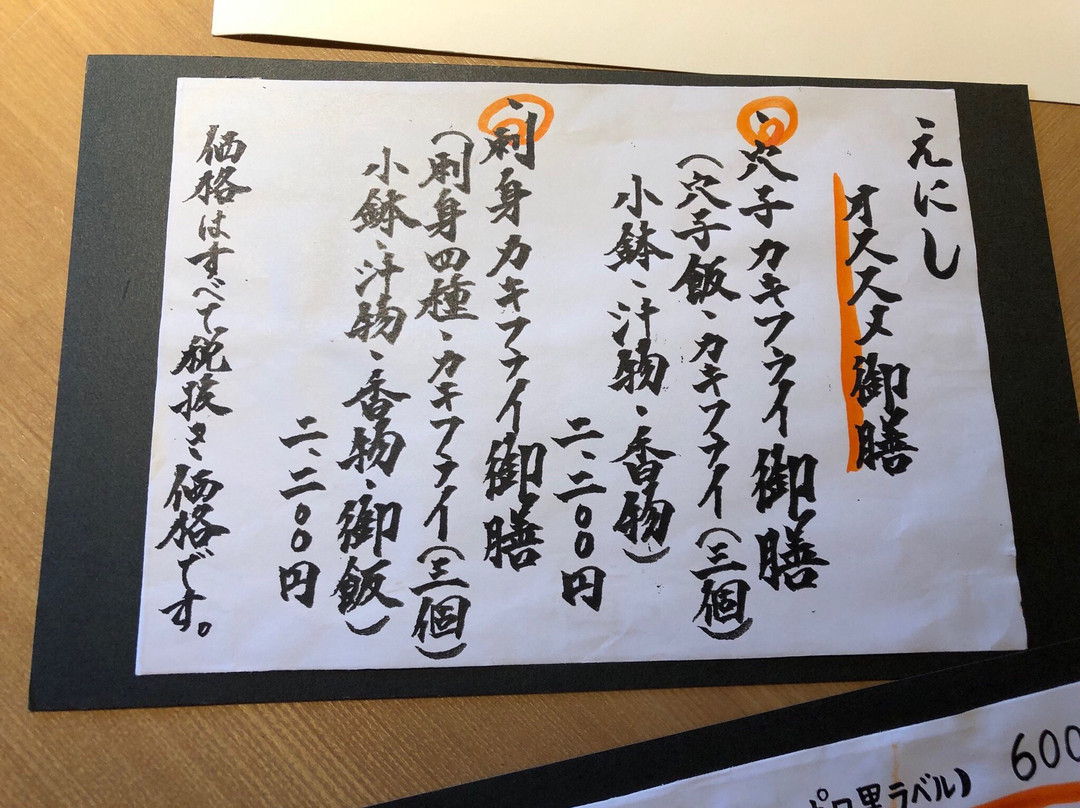 えにし
オススメ御膳
、穴子カキフライ御膳
(穴子飯、カキフライ(三個)
小鉢、汁物、香物)
二、二〇〇円
、刺身カキフライ御膳
(刺身四種、カキフライ(三個)
小鉢、汁物、香物、御飯)
二、二〇〇円
価格はすべて税抜き価格です。
ポロ黒ラベル) 600